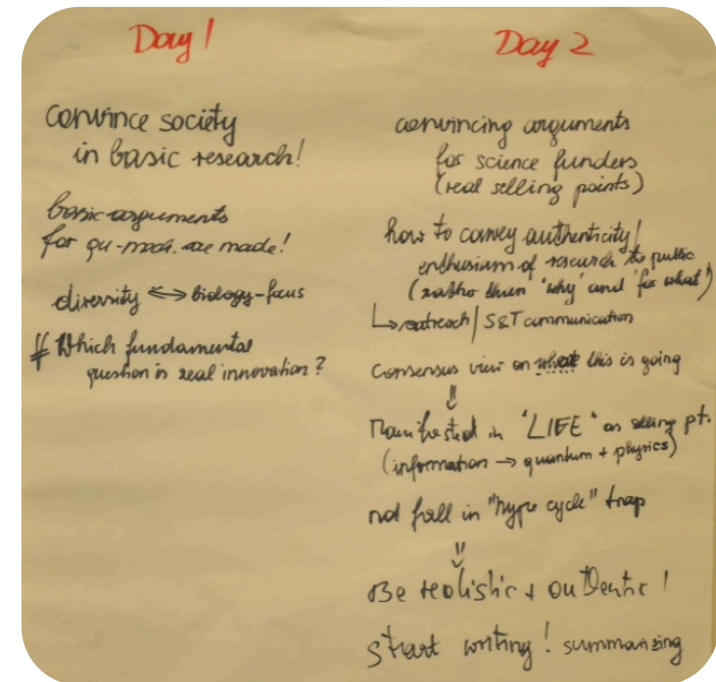 Day 1
convince society
in basic research!
basic arguments
for qu-med. are made!
diversity <=> biology-focus
# Which fundamental
question is real innovation?
Day 2
convincing arguments
for science funders
(real selling points)
how to convey authenticity/
enthusiasm of research to public
(rather then 'why' and 'for what')
↳ outreach / S&T communication
Consensus view on this is going
⇓
Manifested in "LIFE" as selling pt.
(information → quantum + physics)
not fall in "hype cycle" trap
⇓
Be realistic + authentic!
Start writing! summarizing